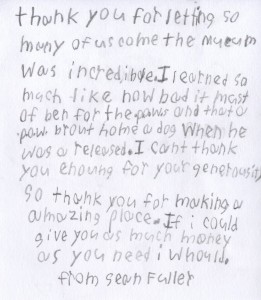 thank you for letting so
many of us come the museum
was incredible. I learned so
much like how bad it most
of ben for the pows and that a
pow brout home a dog when he
was a released. I cant thank
you enoung for your generousity
So thank you for making a
amazing place. If i could
give you as much money
as you need i whould.
from sean Fuller